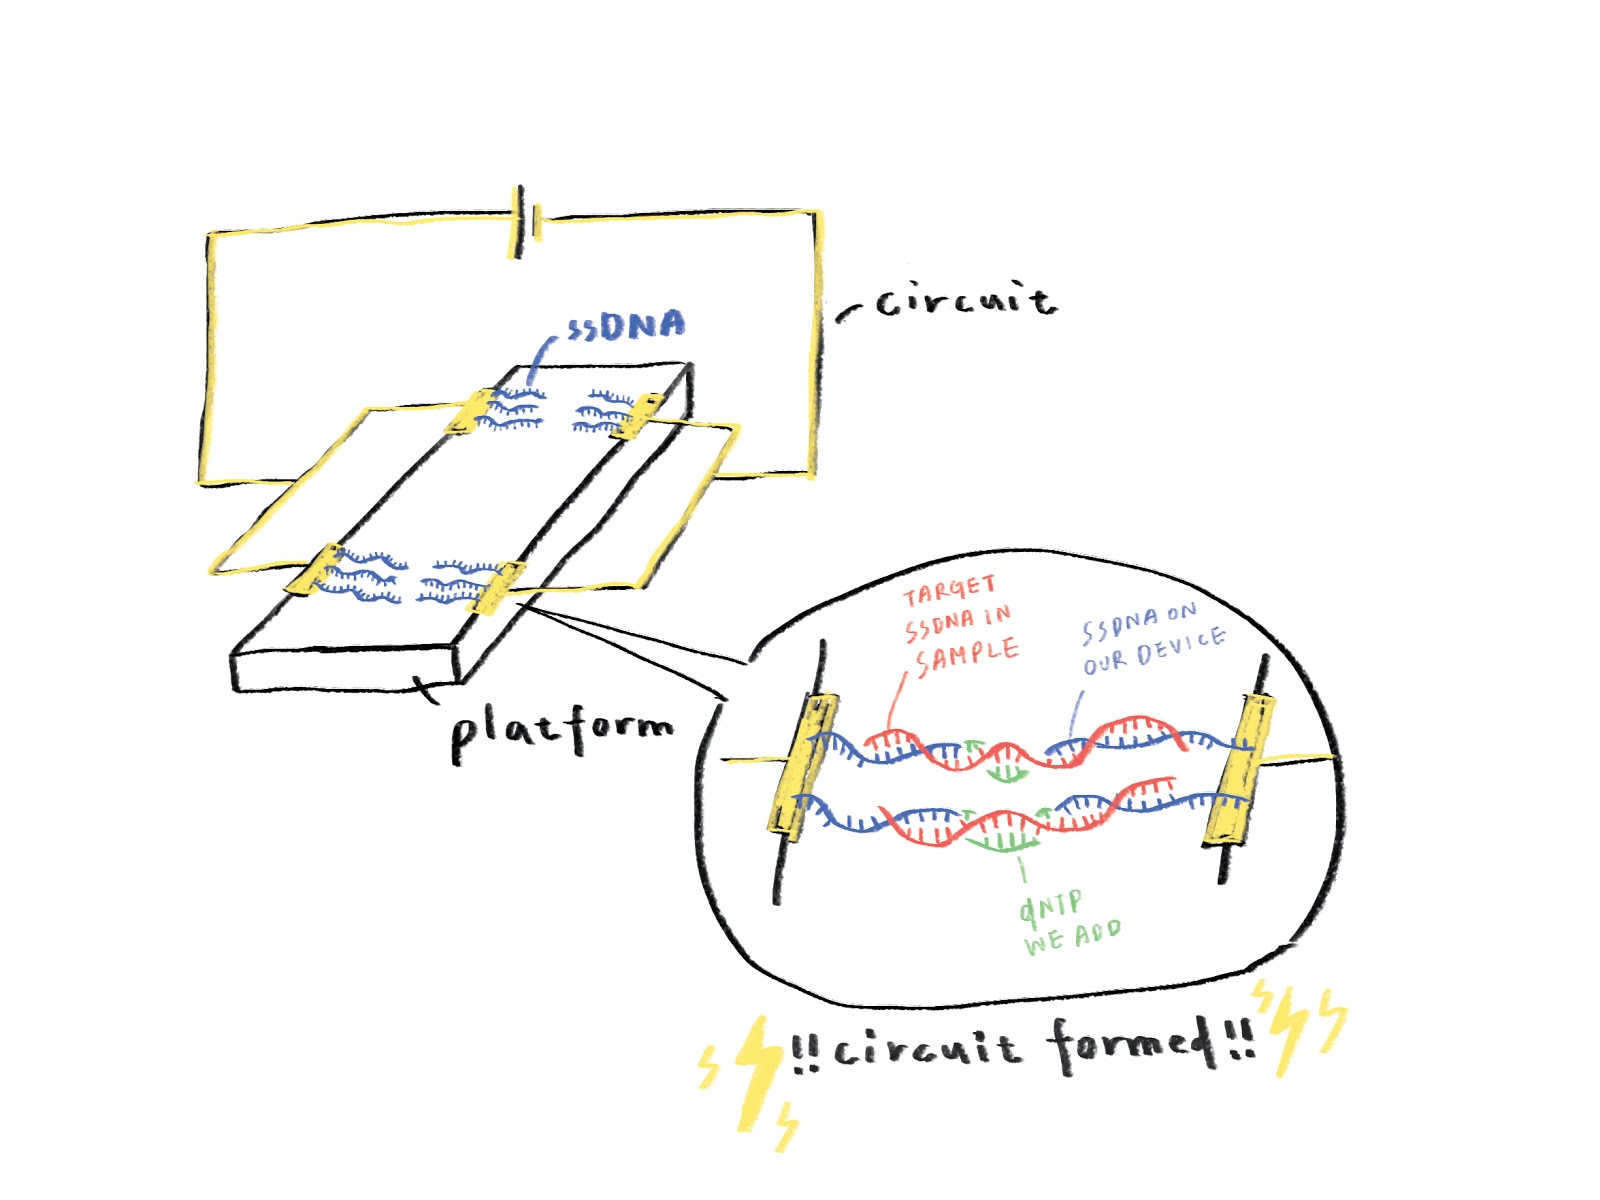 circuit
ssDNA
platform
TARGET
SSDNA IN
SAMPLE
SSDNA ON
OUR DEVICE
dNTP
WE ADD
!!circuit formed!!